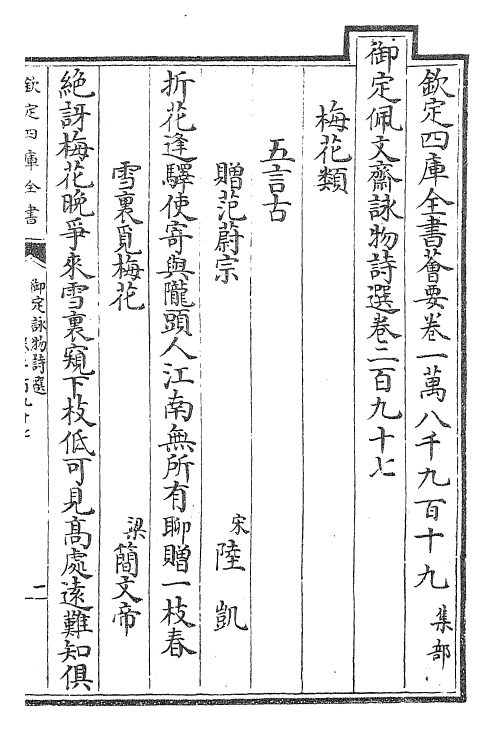 欽定四庫全書薈要卷一萬八千九百十九 集部
御定佩文齋詠物詩選卷二百九十七
梅花類
五言古
贈范蔚宗 宋 陸凱
折花逢驛使寄與隴頭人江南無所有聊贈一枝春
雪裏覓梅花 梁 簡文帝
絶訝梅花晩爭來雪裏窺下枝低可見髙處逺難知俱
欽定四庫全書
御定詠物詩選